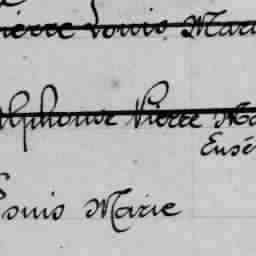 Pierre Louis Mari
Alphonse Pierre Ma
Eusé
Louis Marie